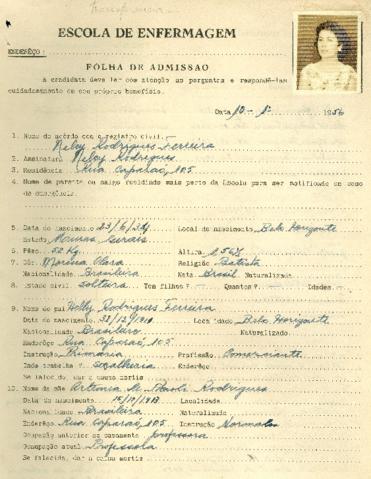 ESCOLA DE ENFERMAGEM
ENDERÊÇO:
FOLHA DE ADMISSÃO
A candidata deve ler com atenção as perguntas e respondê-las
cuidadosamente em seu próprio benefício.
Data 10 - 8 1956
1. Nome de acôrdo com o registro civil:
Rodrigues Ferreira
2. Assinatura Rodrigues
3. Residência Rua Caparaó, 105
4. Nome de parente ou amigo residindo mais perto da Escola para ser notificado em caso
de emergência.
5. Data do nascimento Local do nascimento Belo Horizonte
Estado Minas Gerais
6. Pêso: 52 Kg. Altura
7. Côr: Morena Clara Religião Batista
Nacionalidade Brasileira Nata Brasil Naturalizada
8. Estado civil: solteira Tem filhos? Quantos? Idades.
9. Nome do pai Rodrigues Ferreira
Data do nascimento Localidade Belo Horizonte
Nacionalidade Brasileiro Naturalizado.
Enderêço Rua Caparaó, 105
Instrução Primária Profissão Comerciante
Onde trabalha? Enderêço:
Se falecido, dar a causa mortis
10. Nome da mãe Rodrigues
Data do nascimento Localidade
Nacionalidade Brasileira Naturalizada
Enderêço Rua Caparaó, 105 Instrução
Ocupação anterior ao casamento professora
Ocupação atual Professora
Se falecida, dar a causa mortis